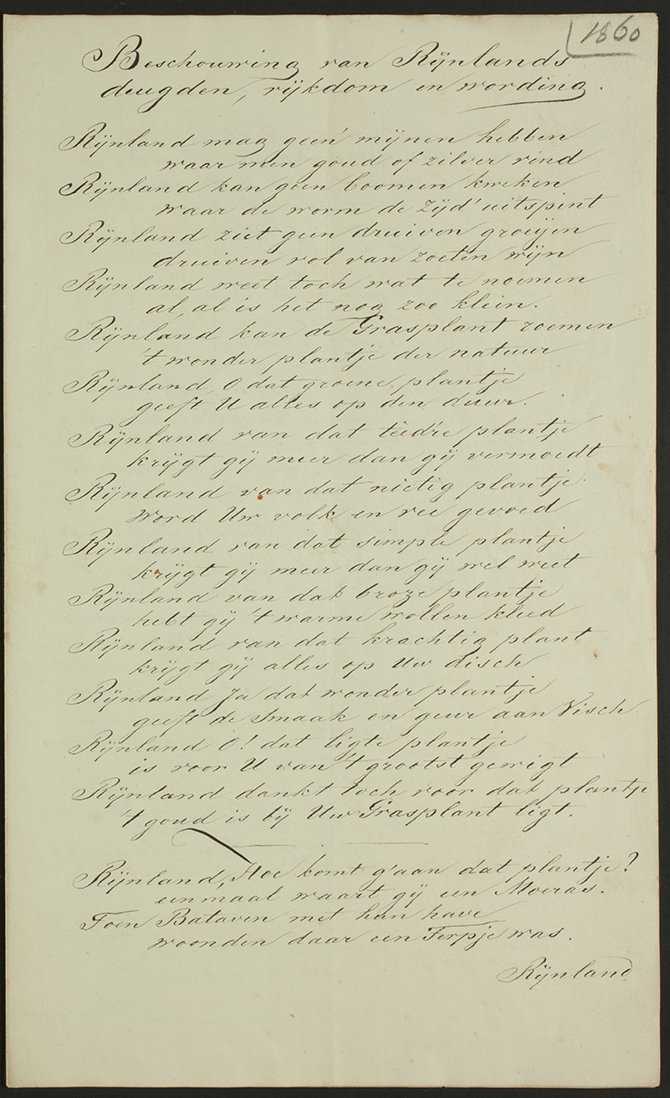 1860
Beschouwing van Rijnlands
deugden, rijkdom en wording.
Rijnland mag geen mijnen hebben
waar men goud of zilver vind
Rijnland kan geen boomen kweken
waar de worm de zijd' uitspint
Rijnland ziet geen druiven groeijen
druiven vol van zoeten wijn
Rijnland weet toch wat te noemen
al, al is het nog zoo klein.
Rijnland kan de Grasplant roemen
't wonder plantje der natuur
Rijnland, O dat groene plantje
geeft U alles op den duur.
Rijnland van dat têed're plantje
krijgt gij meer dan gij vermoedt
Rijnland van dat nietig plantje
word Uw volk en vee gevoed
Rijnland van dat simple plantje
krijgt gij meer dan gij wel weet
Rijnland van dat broze plantje
hebt gij 't warme wollen kleed
Rijnland van dat krachtig plant
krijgt gij alles op Uw disch
Rijnland Ja dat wonder plantje
geeft de Smaak en geur aan Visch
Rijnland O! dat ligte plantje
is voor U van 't grootst gewigt
Rijnland dankt toch voor dat plantje
't goud is bij Uw Grasplant ligt.
Rijnland, Hoe komt g'aan dat plantje?
eenmaal waart gij een Moeras.
Toen Bataven met hun have
woonden daar een Terpje was.
Rijnland